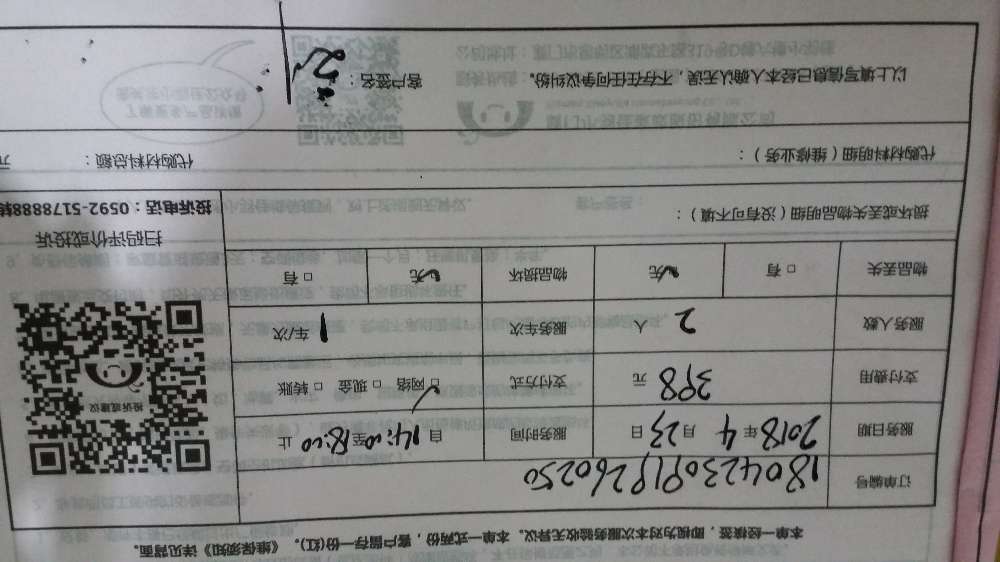 本单一经核签,即视为对本次服务验收无异议。本单一式两份,客户留存一份(红)。《维保须知》详见背面。
订单编号 1804230919260250
服务日期 2018年4月23日 服务时间 自14:00至18:00止
支付费用 398元 支付方式 □网络 □现金 □转账
服务人数 2人 服务车次 1车/次
物品丢失 □有 无 物品损坏 无 □有
投诉或建议
扫码评价或投诉
投诉电话:0592-5178888转
损坏或丢失物品明细(没有可不填):
代购材料明细(维修业务): 代购材料总额: 元
以上填写信息已经本人确认无误,不存在任何争议纠纷。 客户签名: